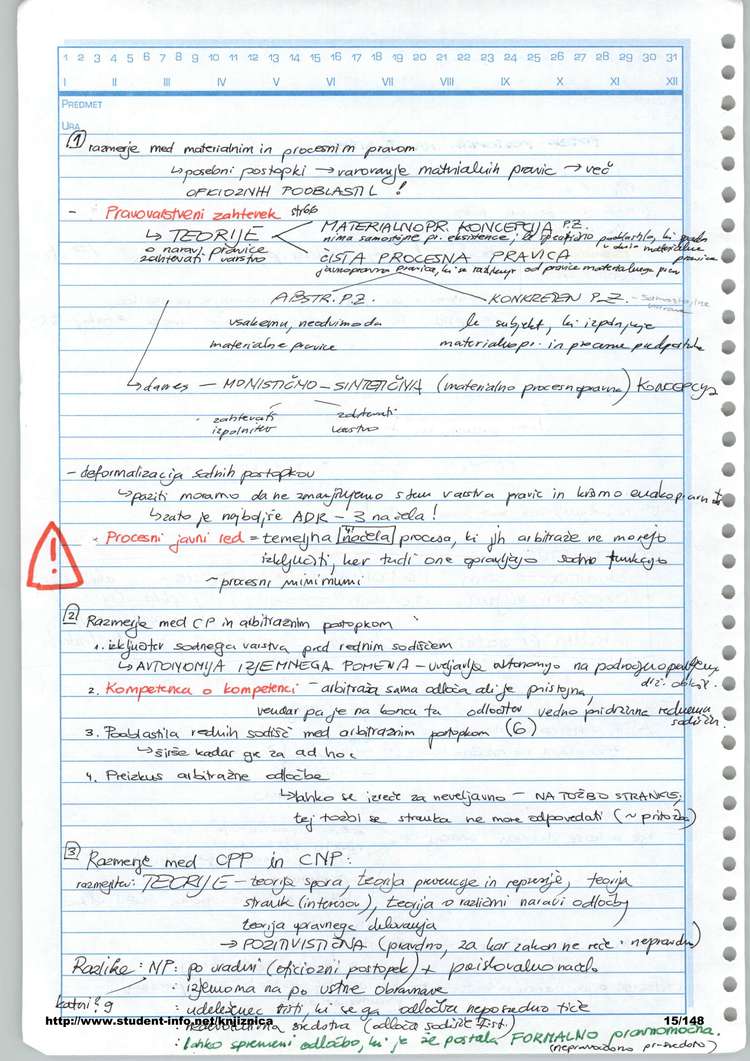 1 2 3 4 5 6 7 8 9 10 11 12 13 14 15 16 17 18 19 20 21 22 23 24 25 26 27 28 29 30 31
I II III IV V VI VII VIII IX X XI XII
PREDMET
URA
1 razmerje med materialnim in procesnim pravom
↳ posebni postopki → varovanje materialnih pravic → več
OFICIOZNIH POOBLASTIL !
- Pravovarstveni zahtevek str 66
↳ TEORIJE
o naravi pravice
zahtevati varstvo
MATERIALNOPR. KONCEPCIJA P.Z.
nima samostojne pr. eksistence; le specifično pooblastilo, ki
ČISTA PROCESNA PRAVICA
javnopravna pravica, ki se razlikuje od pravice materialnega prava
ABSTR. P.Z.
KONKRETEN P.Z. - samostojno
vsakemu, neodvisno od
materialne pravice
le subjekt, ki izpolnjuje
materialnopr. in procesne predpostavke
↳ danes — MONISTIČNO-SINTETIČNA (materialno procesnopravna) KONCEPCIJA
zahtevati
izpolnitev
zahtevati
varstvo
- deformalizacija sodnih postopkov
↳ paziti moramo da ne zmanjšujemo s tem varstva pravic in kršimo enakopravnost
↳ zato je najboljše ADR - 3 načela !
! - Procesni javni red = temeljna načela procesa, ki jih arbitraže ne morejo
izključiti, ker tudi one opravljajo sodno funkcijo
~ procesni minimumi
2 Razmerje med CP in arbitražnim postopkom
1. izključitev sodnega varstva pred rednim sodiščem
↳ AVTONOMIJA IZJEMNEGA POMENA - uveljavlja avtonomijo na področju
drž. oblasti.
2. Kompetenca o kompetenci - arbitraža sama odloča ali je pristojna,
vendar pa je na koncu ta odločitev vedno pridržana rednemu
sodišču.
3. Pooblastila rednih sodišč med arbitražnim postopkom (6)
↳ širše kadar gre za ad hoc
4. Preizkus arbitražne odločbe
↳ lahko se izreče za neveljavno - NA TOŽBO STRANKE;
tej tožbi se stranka ne more odpovedati (~ pritožba)
3 Razmerje med CPP in CNP:
razmejitev: TEORIJE - teorija spora, teorija prevencije in represije, teorija
strank (interesov), teorija o različni naravi odločbe
teorija upravnega delovanja
→ POZITIVISTIČNA (pravdno, za kar zakon ne reče nepravdno)
Razlike: NP: po uradni (oficiozni postopek) + preiskovalno načelo
kateri? 9
: izjemoma na po ustne obravnave
: udeleženec tisti, ki se ga odločitev neposredno tiče
sredstva (odloča sodišče 1. st.)
: lahko spremeni odločbo, ki je že postala FORMALNO pravnomočna.
http://www.student-info.net/knjiznica
15/148